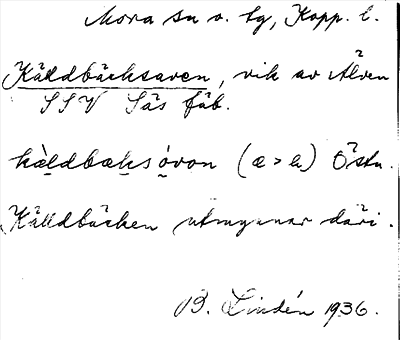 Mora sn o. tg, Kopp. l.
Källdbäcksaven, vik av Älven
SSV Säs fäb.
kàldbaks óvon (a > ä) Östn.
Källdbäcken utmynnar däri.
B. Lindén 1936.